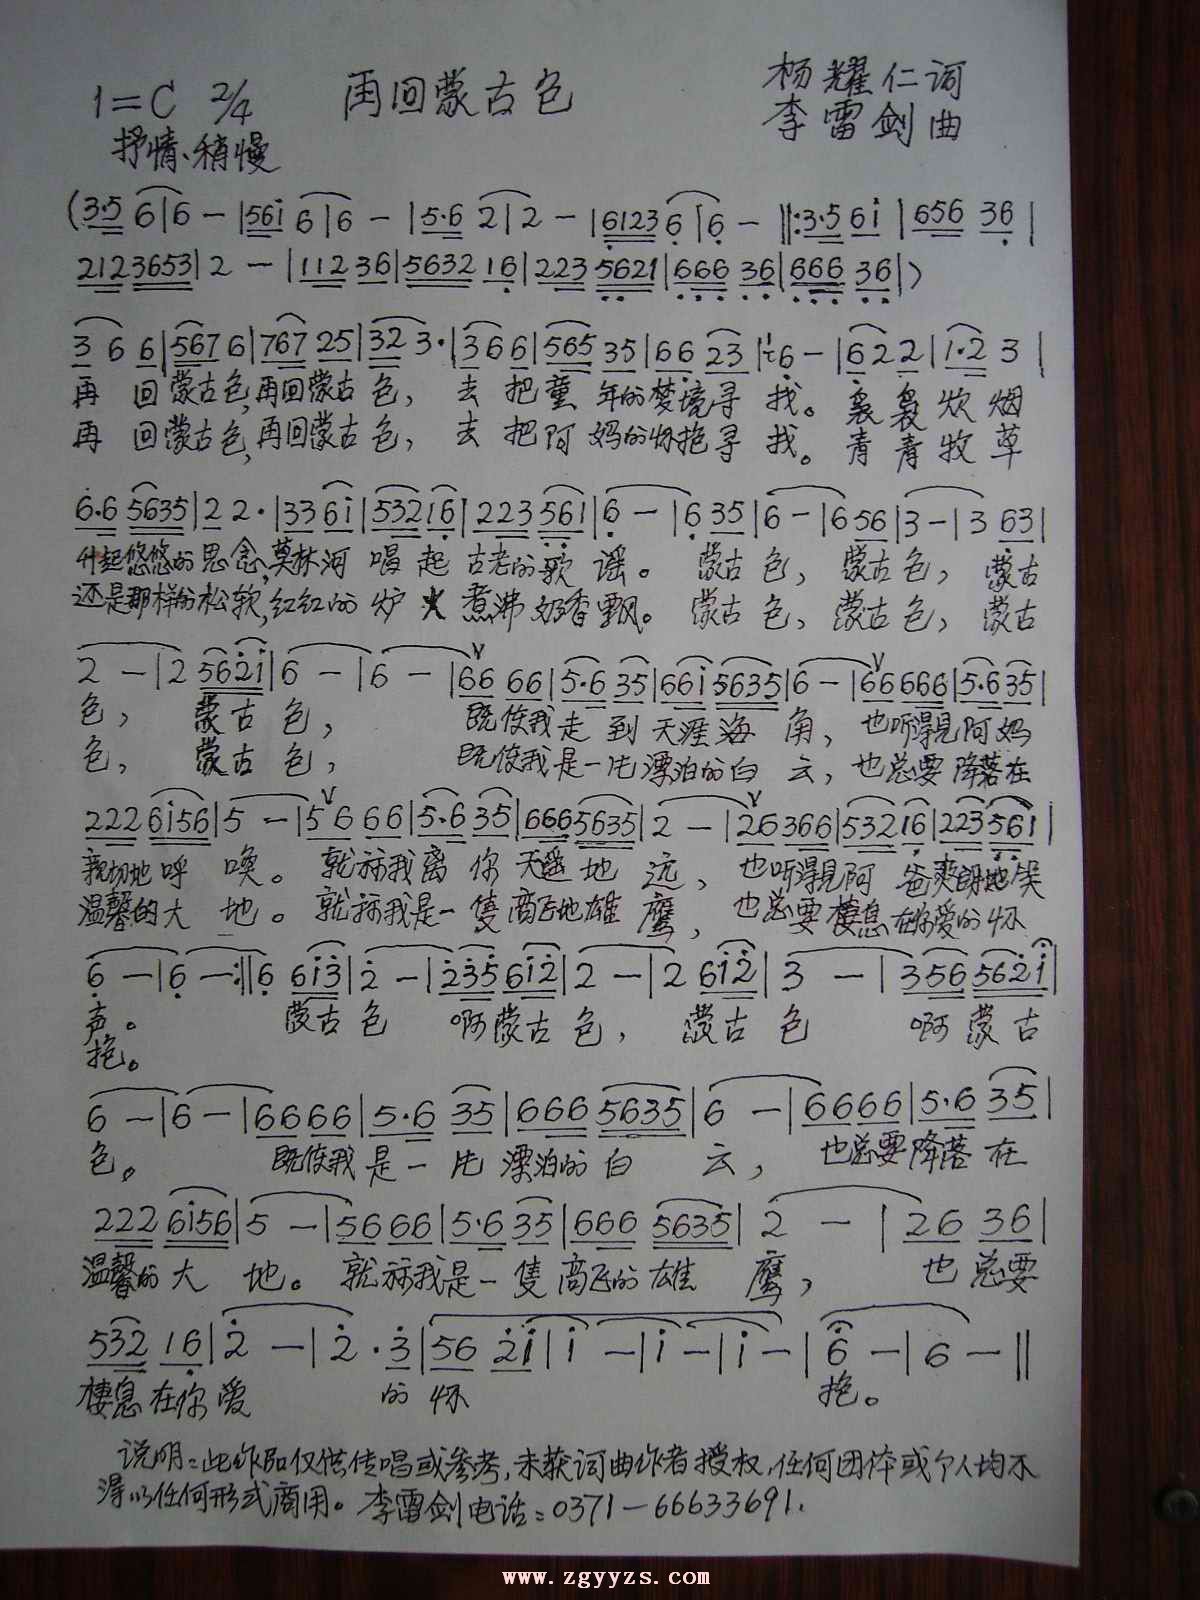 1=C 2/4 再回蒙古包 杨耀仁词
抒情、稍慢 李雷剑曲
(3·5 6|6 - |561 6|6 - |5·6 2|2 - |6123 6|6 - ‖:3·5 6i |656 36|
2123653|2 - |112 36|5632 16|223 5621|666 36|666 36|)
3 6 6|567 6|767 25|32 3·|36 6|565 35|66 23|6 - |62 2|1·2 3|
再 回蒙古包,再回蒙古包, 去把童年的梦境寻找。袅袅炊烟
再 回蒙古包,再回蒙古包, 去把阿妈的怀抱寻找。青青牧草
6·6 5635|2 2·|33 6i|532 16|223 561|6 - |6 35|6 - |6 56|3 - |3 63|
升起悠悠的思念,莫林河唱起古老的歌谣。蒙古包,蒙古包,蒙古
还是那样的松软,红红的炉火煮沸奶香飘。蒙古包,蒙古包,蒙古
2 - |2 562i|6 - |6 - |66 66|5·6 35|66i 5635|6 - |66 666|5·6 35|
包, 蒙古包, 既使我走到天涯海角,也听得见阿妈
包, 蒙古包, 既使我是一片漂泊的白云,也总要降落在
222 6i56|5 - |56 66|5·6 35|666 5635|2 - |26 366|532 16|223 561|
亲切地呼唤。就祘我离你天遥地远,也听得见阿爸爽朗地笑
温馨的大地。就祘我是一隻高飞地雄鹰,也总要棲息在你爱的怀
6 - |6 - :‖6 6i3|2 - |235 6i2|2 - |2 6i2|3 - |3 56 562i|
声。 蒙古包 啊蒙古包,蒙古包 啊蒙古
抱。
6 - |6 - |66 66|5·6 35|666 5635|6 - |66 66|5·6 35|
包。 既使我是一片漂泊的白云,也总要降落在
222 6i56|5 - |56 66|5·6 35|666 5635|2 - |26 36|
温馨的大地。就祘我是一隻高飞的雄鹰,也总要
532 16|2 - |2·3|56 2i|i - |i - |i - |6 - |6 - ‖
棲息在你爱 的怀 抱。
说明:此作品仅供传唱或参考,未获词曲作者授权,任何团体或个人均不
得以任何形式商用。李雷剑电话:0371-66633691.
www.zgyyzs.com